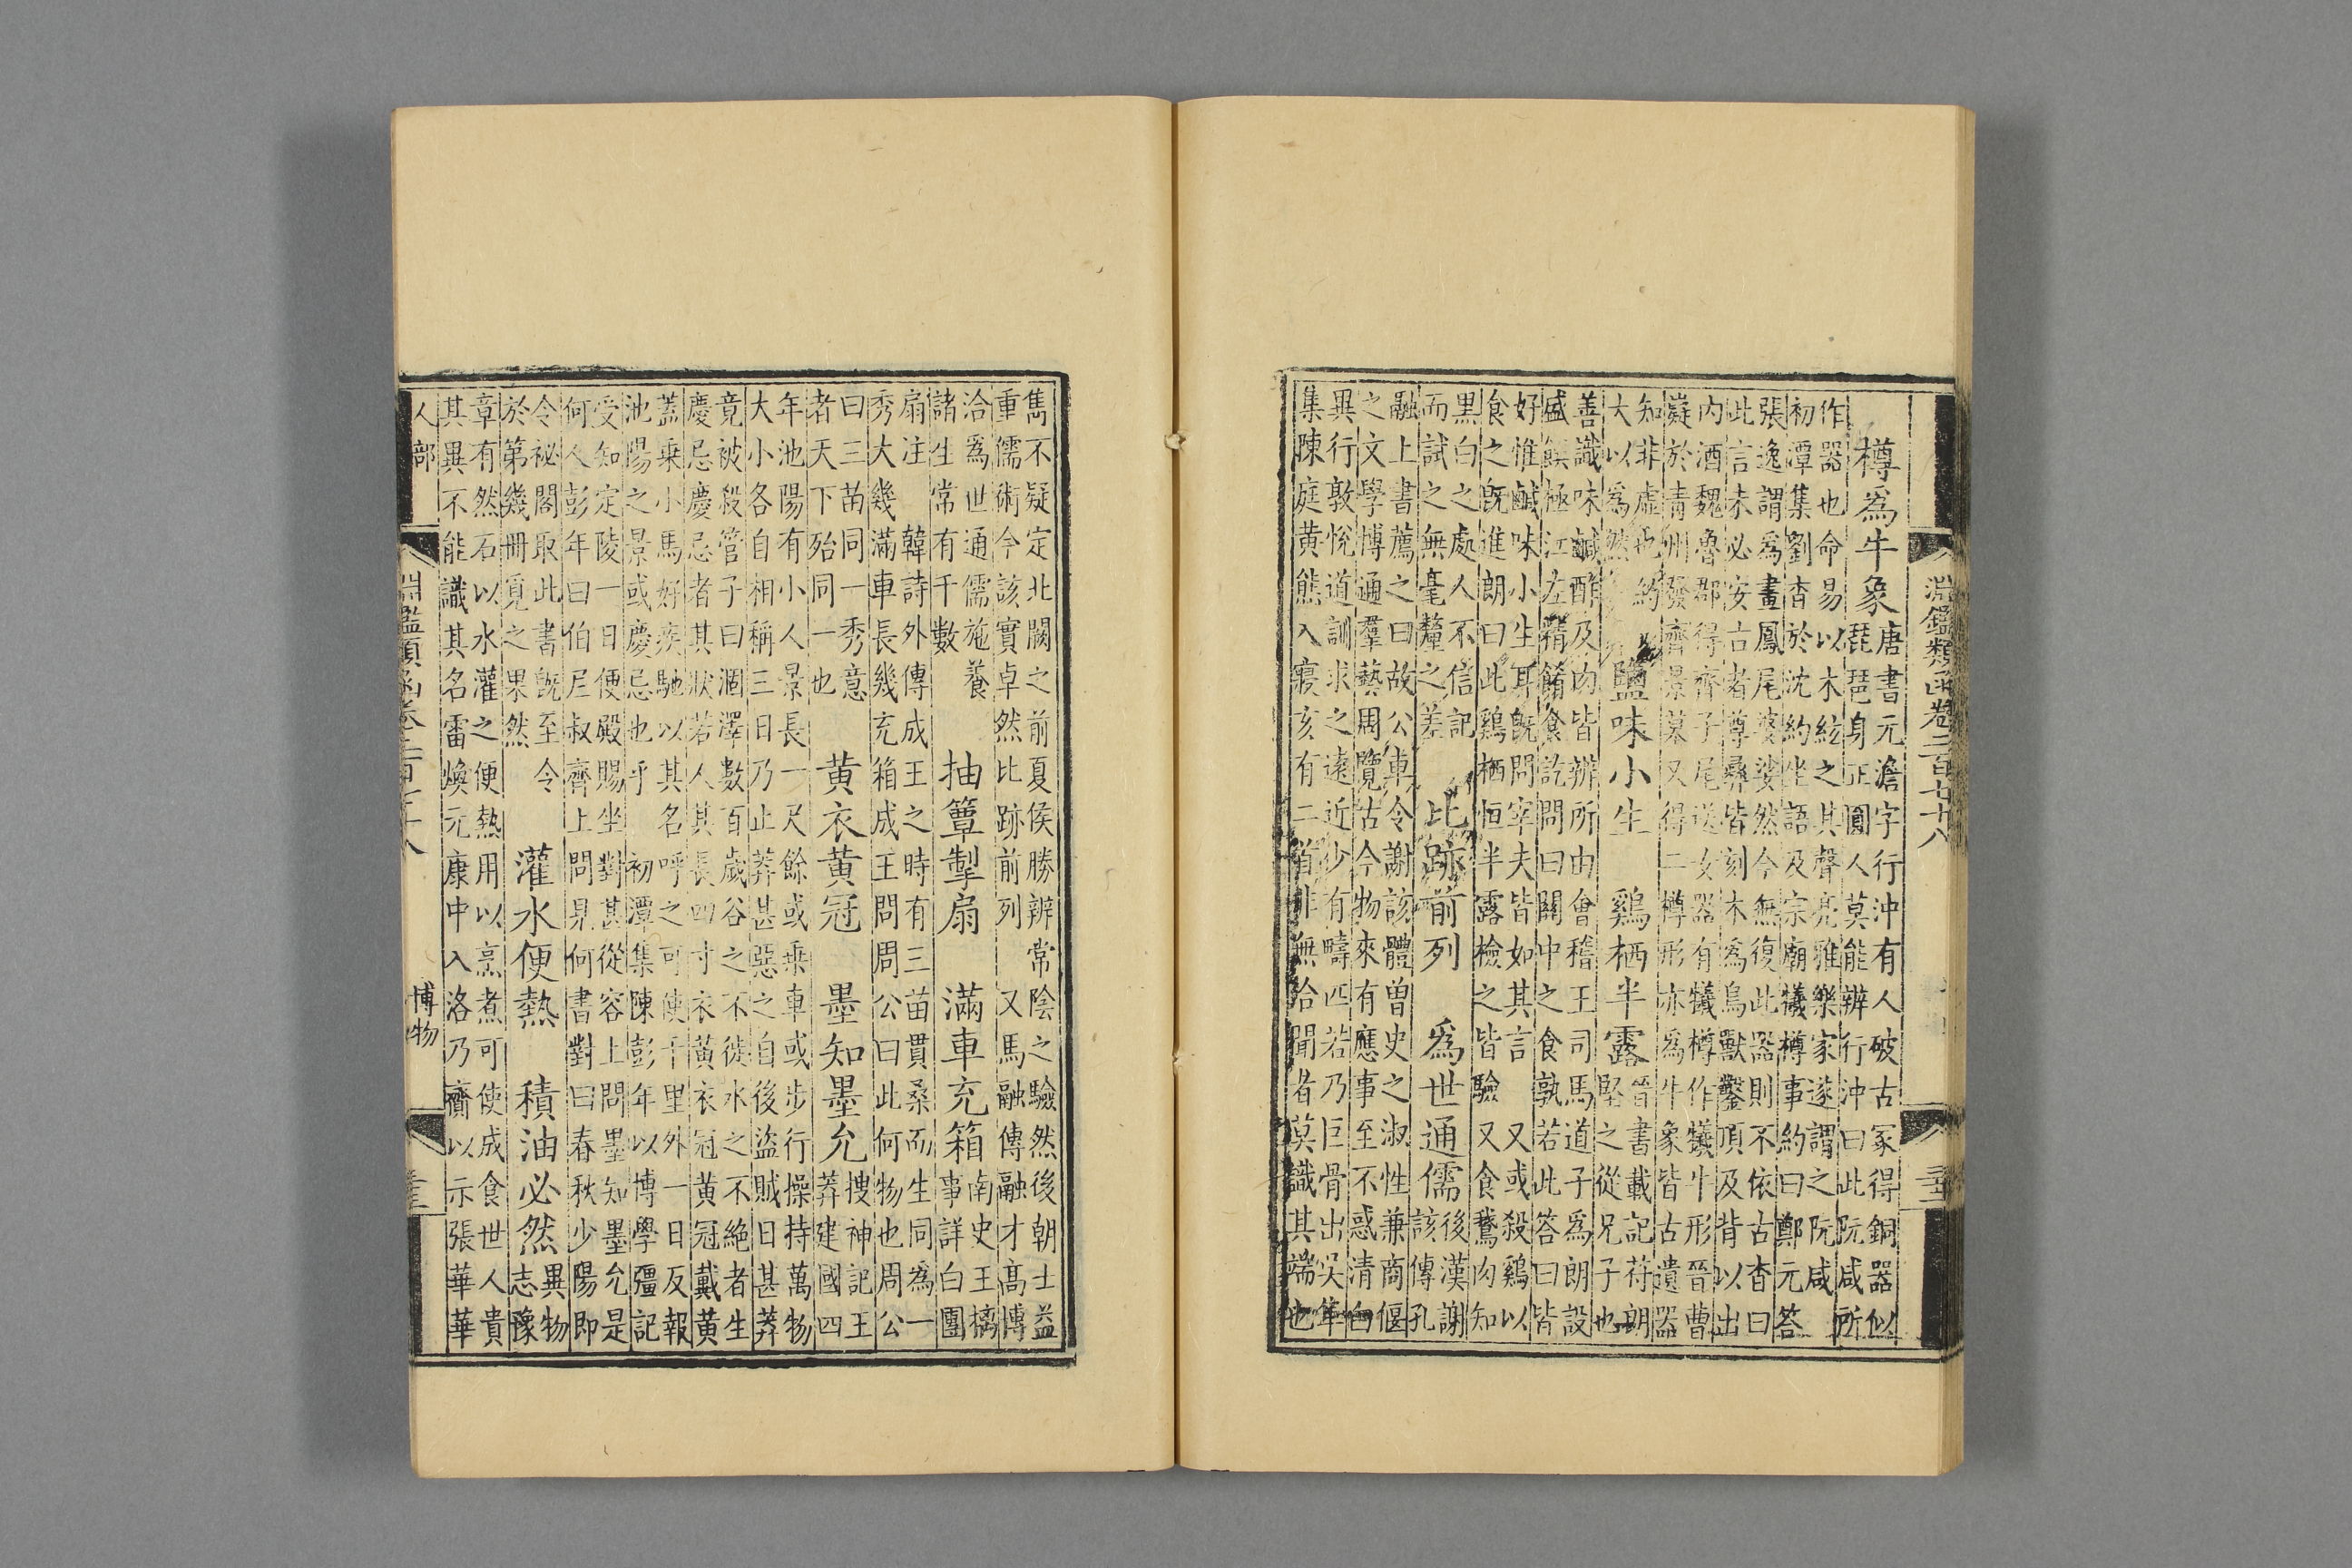 淵鑑類函卷二百七十八
樽爲牛象
唐書元澹字行沖有人破古冢得銅器似
琵琶身正圓人莫能辨行沖曰此阮咸所
作器也命易以木絃之其聲亮雅樂家遂謂之阮咸
初潭集劉杳於沈約坐語及宗廟犧樽事約曰鄭元答
張逸謂爲畫鳳尾婆娑然今無復此器則不依古杳曰
此言未必安古者尊彝皆刻木爲鳥獸鑿頂及背以出
内酒魏魯郡得齊子尾送女器有犧樽作犧牛形晉曹
嶷於青州發齊景墓又得二樽形亦爲牛象皆古遺器
知非虛也約
大以爲然
鹽味小生 鷄栖半露
晉書載記苻朗
堅之從兄子也
善識味鹹酢及肉皆辨所由會稽王司馬道子爲朗設
盛饌極江左精餚食訖問曰關中之食孰若此答曰皆
好惟鹹味小生耳既問宰夫皆如其言 又或殺鷄以
食之既進朗曰此鷄栖恒半露檢之皆驗 又食鵞肉知
黑白之處人不信記
而試之無毫釐之差
比跡前列 爲世通儒
後漢謝
該傳孔
融上書薦之曰故公車令謝該體曽史之淑性兼商偃
之文學博通羣藝周覽古今物來有應事至不惑清白
異行敦悅道訓求之遠近少有疇匹若乃巨骨出吳隼
集陳庭黄熊入寢亥有二首非無洽聞者莫識其端也
雋不疑定北闕之前夏侯勝辨常陰之驗然後朝士益
重儒術今該實卓然比跡前列 又馬融傳融才高博
洽爲世通儒施養
諸生常有千數
抽簟掣扇 滿車充箱
南史王摛
事詳白團
扇注 韓詩外傳成王之時有三苗貫桑而生同爲一
秀大幾滿車長幾充箱成王問周公曰此何物也周公
曰三苗同一秀意
者天下殆同一也
黄衣黄冠 墨知墨允
搜神記王
莽建國四
年池陽有小人景長一尺餘或乗車或步行操持萬物
大小各自相稱三日乃止莽甚惡之自後盗賊日甚莽
竟被殺管子曰涸澤數百歲谷之不徙水之不絶者生
慶忌慶忌者其狀若人其長四寸衣黄衣冠黄冠戴黄
蓋乗小馬好疾馳以其名呼之可使千里外一日反報
池陽之景或慶忌也乎 初潭集陳彭年以博學彊記
受知定陵一日便殿賜坐對甚從容上問墨知墨允是
何人彭年曰伯尼叔齊上問見何書對曰春秋少陽即
令祕閣取此書既至令
於第幾冊覓之果然
灌水便熱 積油必然
異物
志豫
章有然石以水灌之便熱用以烹煮可使成食世人貴
其異不能識其名雷煥元康中入洛乃齎以示張華華
人部
淵鑑類函卷二百七十八
博物